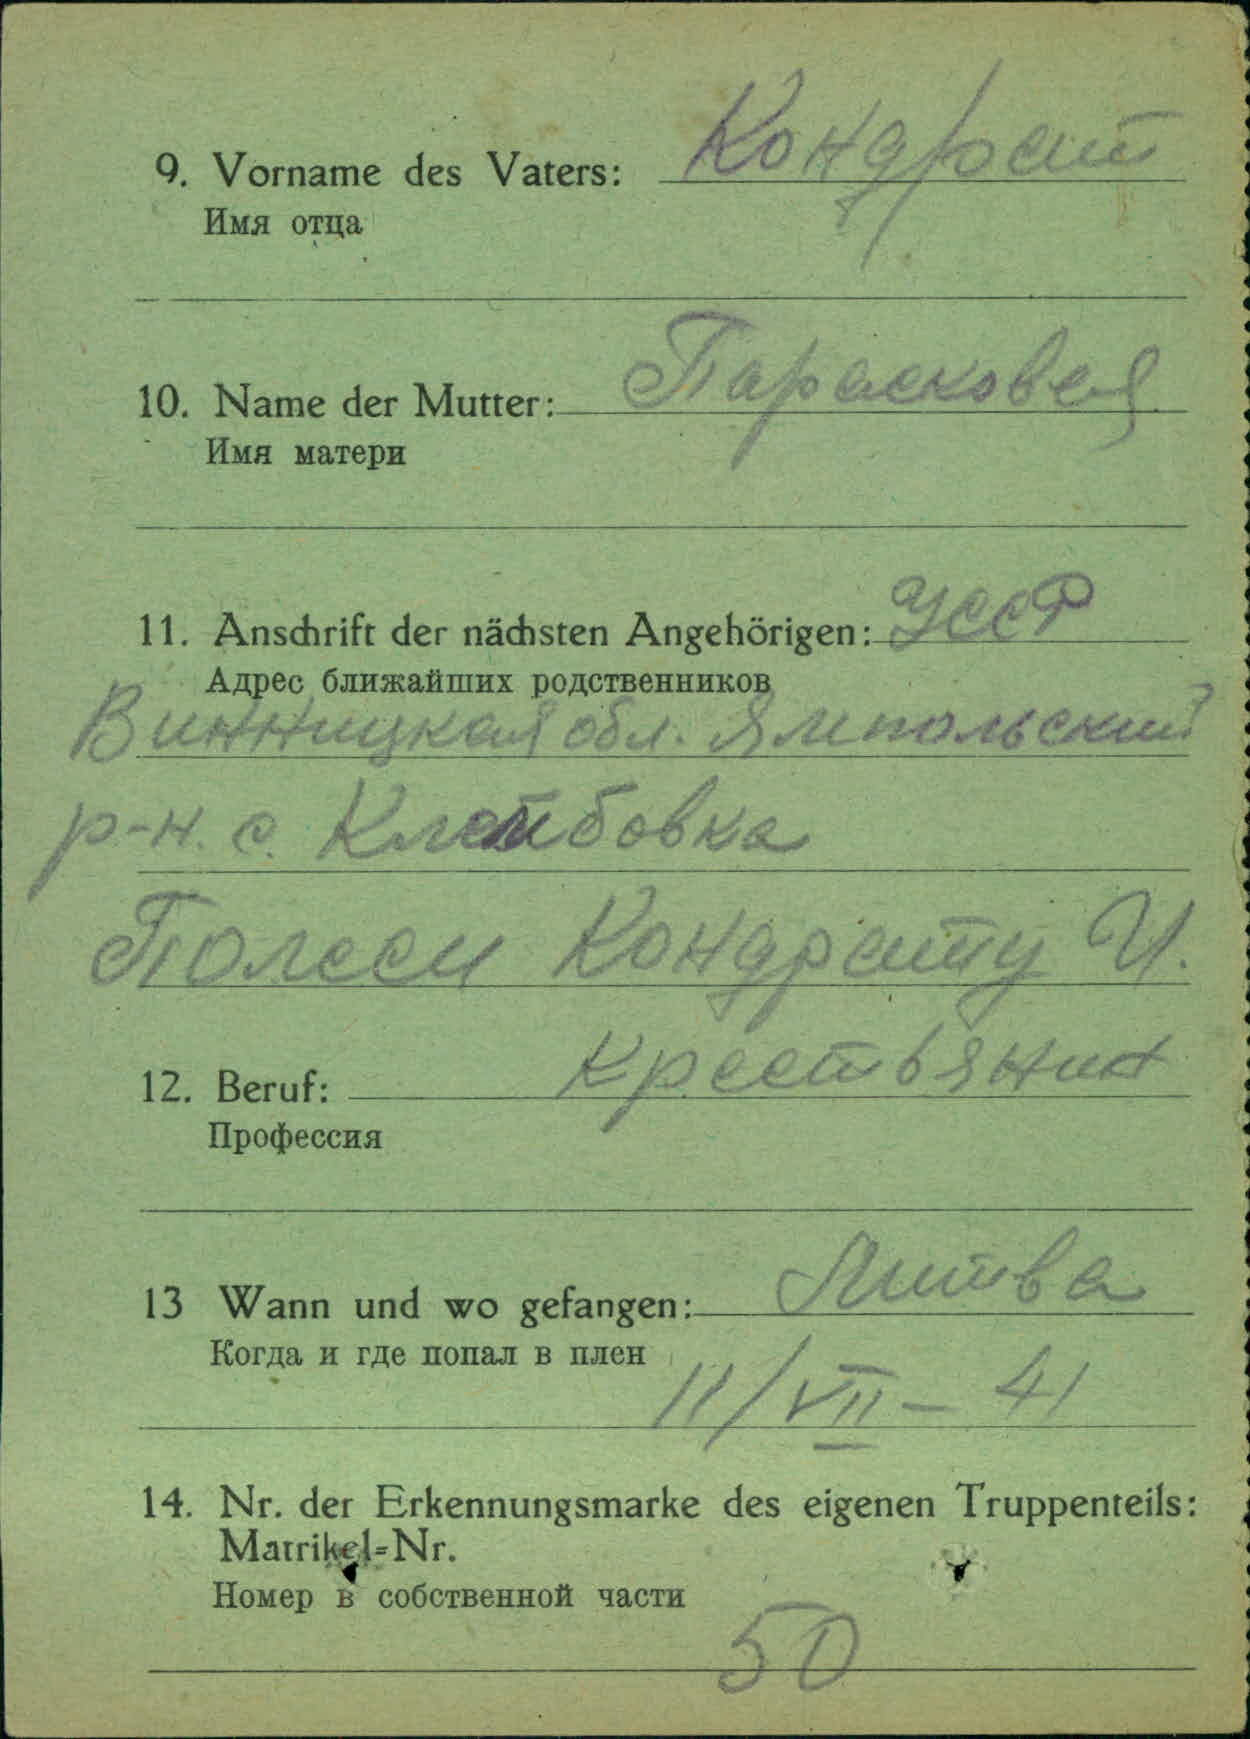 9. Vorname des Vaters: Кондрат
Имя отца
10. Name der Mutter: Парасковея
Имя матери
11. Anschrift der nächsten Angehörigen: УССР
Адрес ближайших родственников
Винницкая обл. Ямпольский
р-н. с. Клембовка
Полеси Кондрату И.
12. Beruf: Крестьянин
Профессия
13 Wann und wo gefangen: Литва
Когда и где попал в плен
11/VII – 41
14. Nr. der Erkennungsmarke des eigenen Truppenteils:
Matrikel-Nr.
Номер в собственной части
50